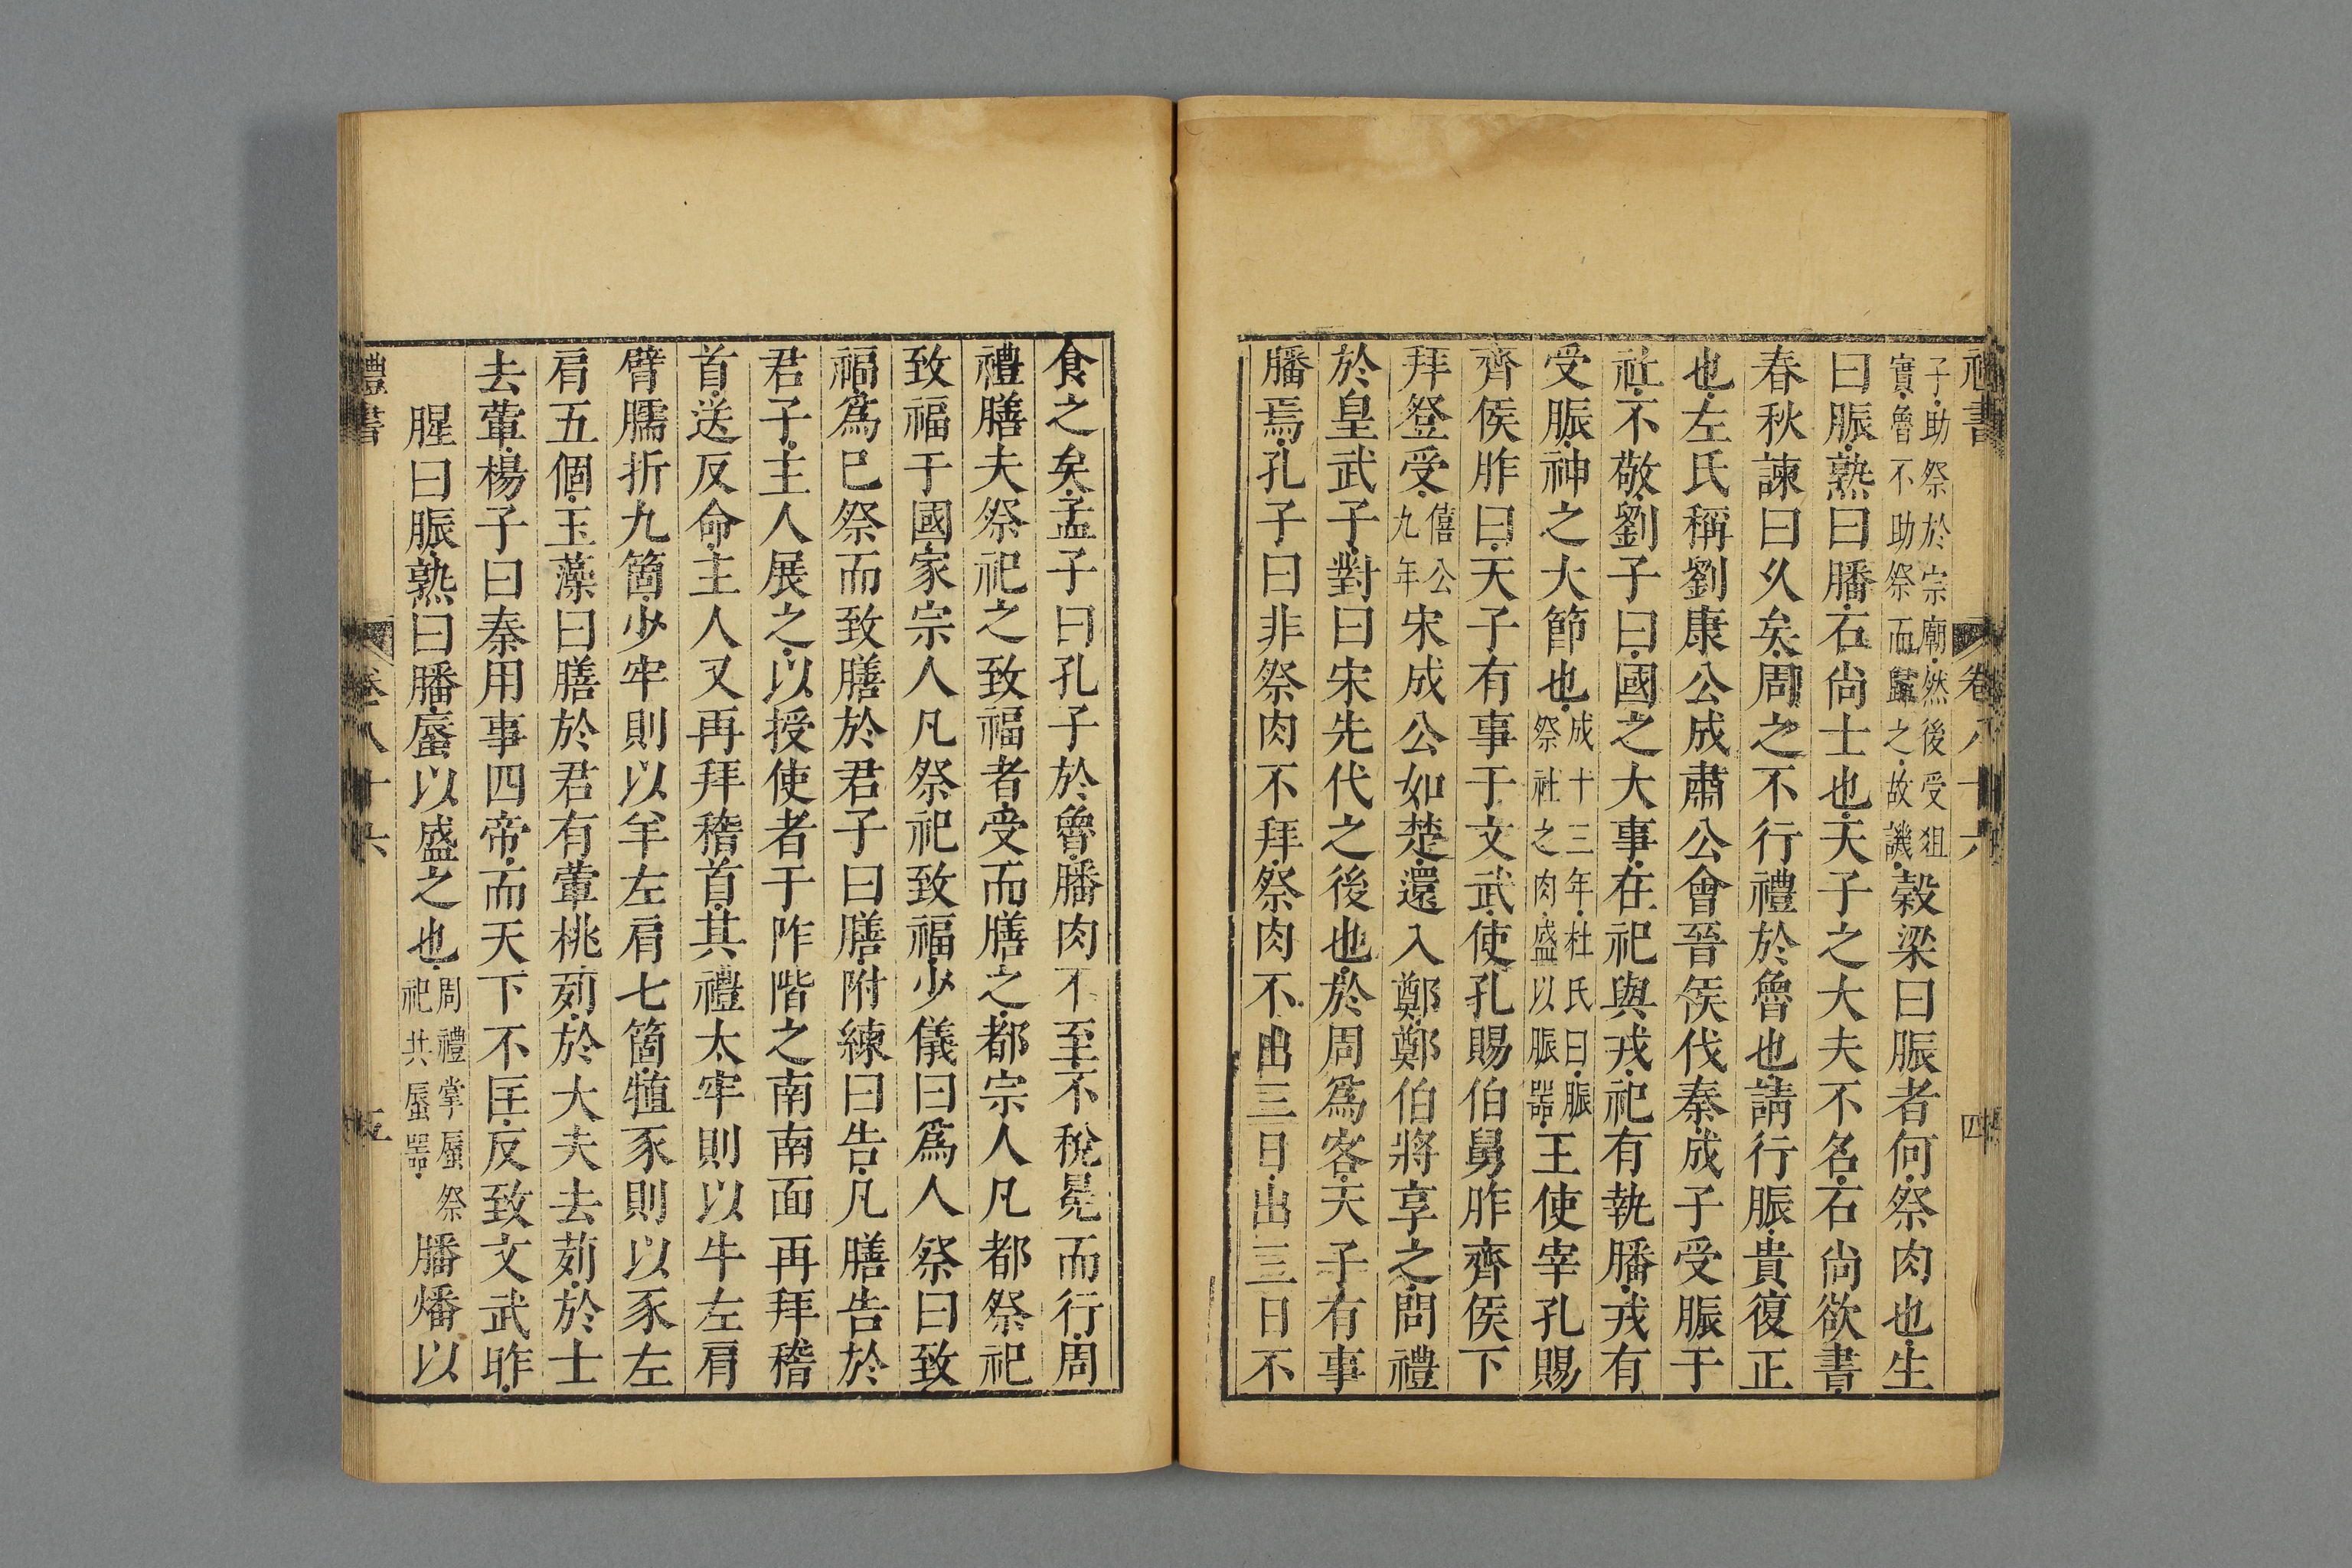 禮書 卷八十六 四
子助祭於宗廟然後受俎
實魯不助祭而歸之故譏穀梁曰脤者何祭肉也生
曰脤熟曰膰石尚士也天子之大夫不名石尚欲書
春秋諫曰久矣周之不行禮於魯也請行脤貴復正
也左氏稱劉康公成肅公會晉侯伐秦成子受脤于
社不敬劉子曰國之大事在祀與戎祀有執膰戎有
受脤神之大節也成十三年杜氏曰脤
祭社之肉盛以脤器王使宰孔賜
齊侯胙曰天子有事于文武使孔賜伯舅胙齊侯下
拜登受僖公
九年宋成公如楚還入鄭鄭伯將享之問禮
於皇武子對曰宋先代之後也於周爲客天子有事
膰焉孔子曰非祭肉不拜祭肉不出三日出三日不
食之矣孟子曰孔子於魯膰肉不至不稅冕而行周
禮膳夫祭祀之致福者受而膳之都宗人凡都祭祀
致福于國家宗人凡祭祀致福少儀曰爲人祭曰致
福爲巳祭而致膳於君子曰膳附練曰告凡膳告於
君子主人展之以授使者于阼階之南南面再拜稽
首送反命主人又再拜稽首其禮太牢則以牛左肩
臂臑折九箇少牢則以羊左肩七箇犆豕則以豕左
肩五個玉藻曰膳於君有葷桃茢於大夫去茢於士
去葷楊子曰秦用事四帝而天下不匡反致文武昨
腥曰脤熟曰膰蜃以盛之也周禮掌蜃祭
祀共蜃器膰燔以
禮書 卷八十六 五